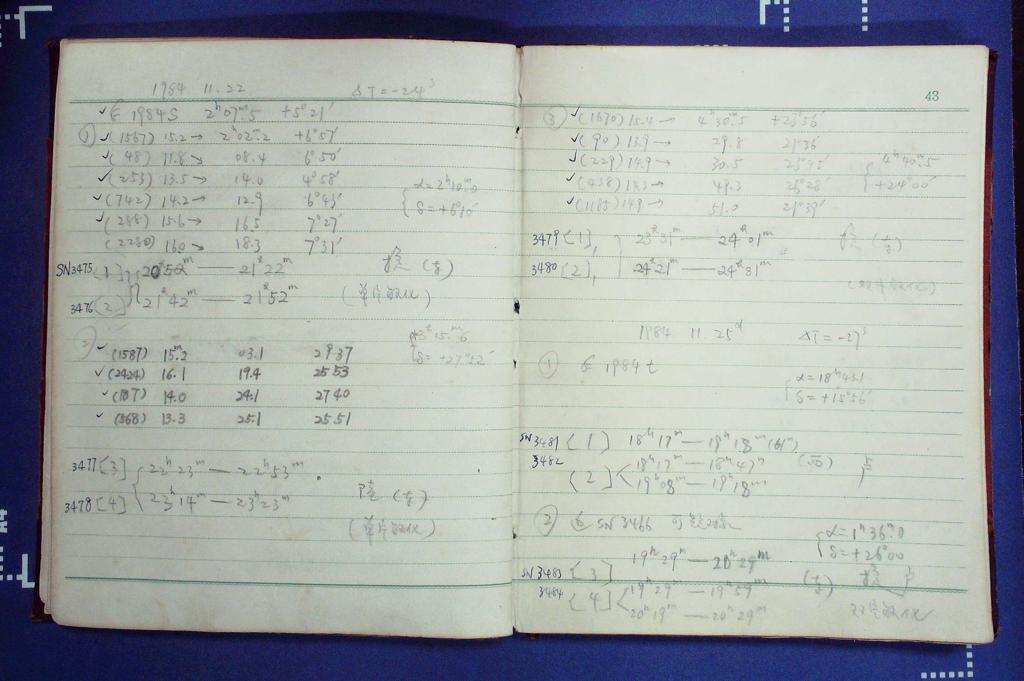 1984 11.22 ΔT=-24ˢ
✓ 1984 S 2ʰ07ᵐ.5 +5°21′
① ✓(1567) 15.2→ 2ʰ02ᵐ.2 +6°57′
✓(48) 11.8→ 08.4 6°50′
✓(253) 13.5→ 14.0 4°58′
✓(742) 14.2→ 12.9 6°43′
✓(288) 15.6→ 16.5 7°27′
(2280) 16.0→ 18.3 7°31′
SN3475 [1] 20ʰ52ᵐ — 21ʰ22ᵐ
3476 [2] 21ʰ42ᵐ — 21ʰ52ᵐ
α=2ʰ10ᵐ.0
δ=+6°10′
②
✓(1587) 15ᵐ.2 03.1 29 37
✓(2424) 16.1 19.4 25 53
✓(107) 14.0 24.1 27 40
✓(568) 13.3 25.1 25.51
3ʰ15ᵐ.6
δ=+27°52′
3477 [3] 22ʰ23ᵐ — 22ʰ53ᵐ
3478 [4] 23ʰ14ᵐ — 23ʰ23ᵐ
43
③ ✓(1670) 15.4→ 4ʰ30ᵐ.5 +23°56′
✓(90) 13.9→ 29.8 21°36′
✓(229) 14.9→ 30.5 23°45′
✓(438) 14.3→ 49.3 26°28′
✓(1185) 14.9→ 51.0 21°39′
4ʰ40ᵐ.5
+24°00′
3479 [1], 23ʰ31ᵐ — 24ʰ01ᵐ
3480 [2], 24ʰ21ᵐ — 24ʰ31ᵐ
1984 11.25ᵈ ΔT=-27ˢ
① 1984 t
α=18ʰ43.1
δ=+15°56′
SN3481 [1] 18ʰ17ᵐ — 19ʰ18ᵐ (61ᵐ)
3482 [2] 18ʰ17ᵐ — 18ʰ47ᵐ (西)
19ʰ08ᵐ — 19ʰ18ᵐ
② SN3466 可
α=1ʰ36ᵐ.0
δ=+26°00
SN3483 [3] 19ʰ29ᵐ — 20ʰ29ᵐ
3484 [4] 19ʰ29ᵐ — 19ʰ59ᵐ
20ʰ19ᵐ — 20ʰ29ᵐ